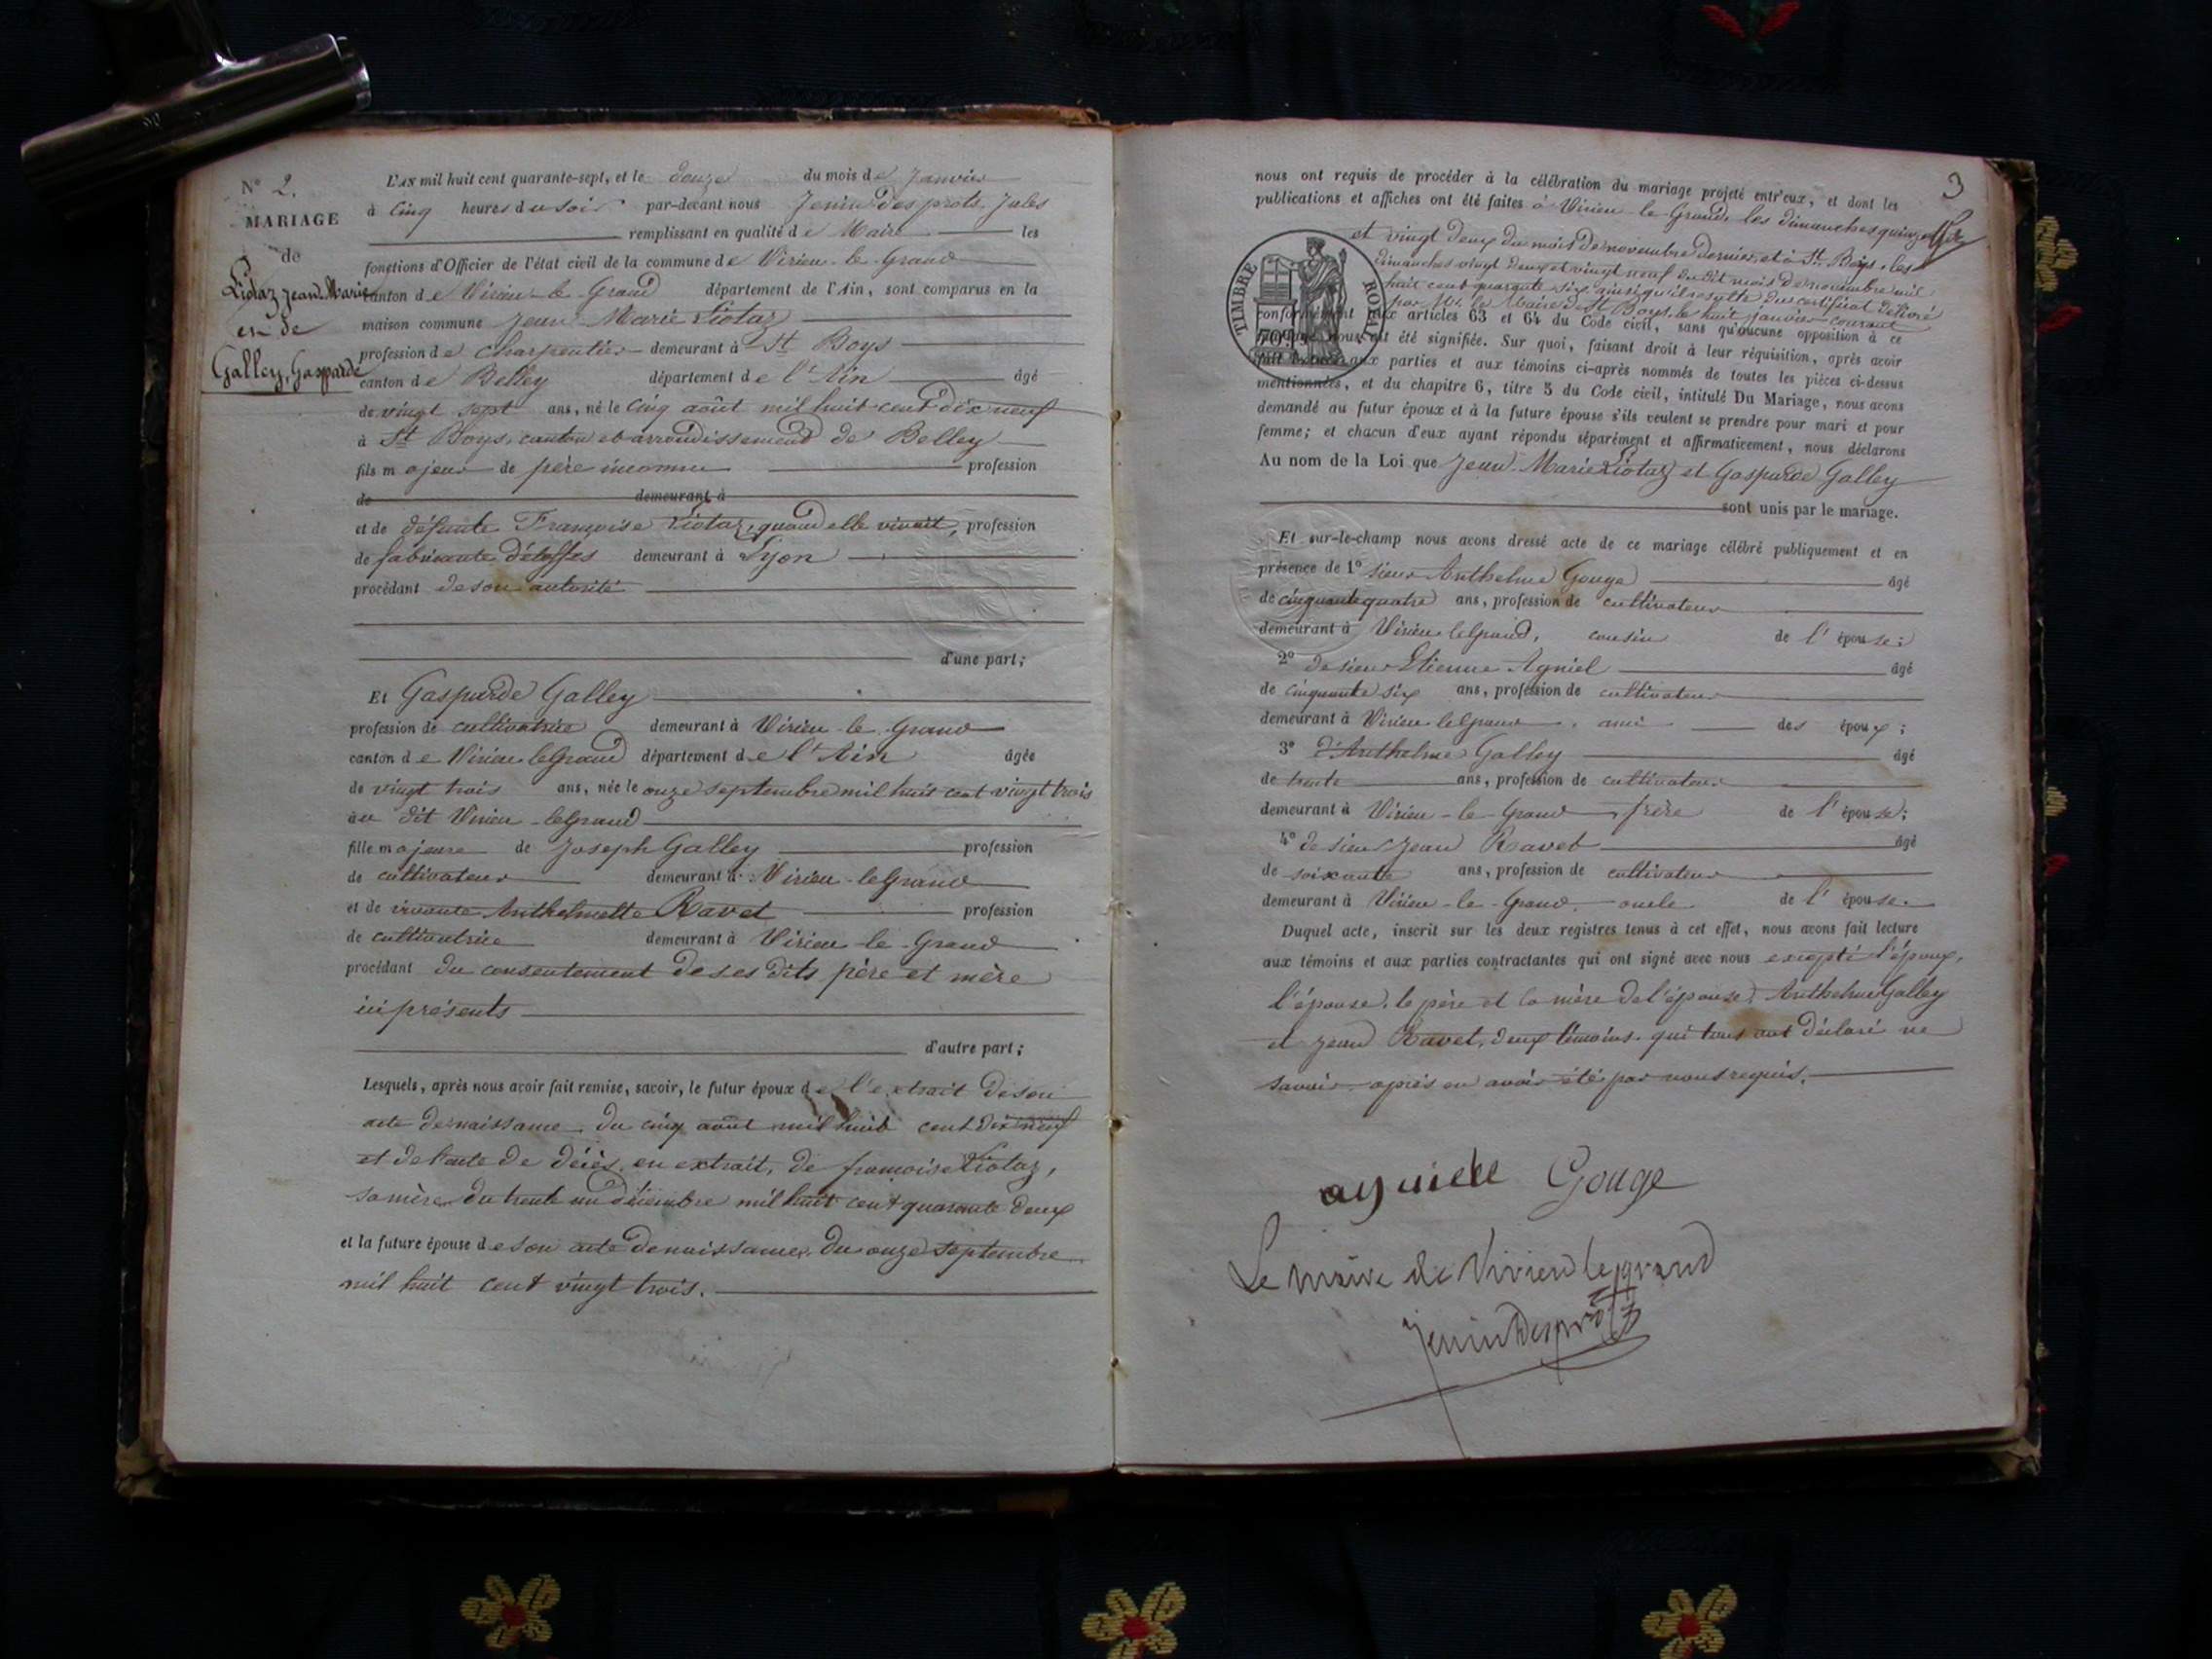 N° 2.
MARIAGE
de
Liotaz Jean-Marie
et de
Galley, Gasparde
L'AN mil huit cent quarante-sept, et le douze du mois de Janvier
à cinq heures du soir par-devant nous Jenin Desprots, Jules
remplissant en qualité de Maire les
fonctions d'Officier de l'état civil de la commune de Virieu-le-Grand
canton de Virieu-le-Grand département de l'Ain, sont comparus en la
maison commune Jean-Marie Liotaz
profession de charpentier demeurant à St Boys
canton de Belley département de l'Ain âgé
de vingt sept ans, né le cinq août mil huit cent dix neuf
à St Boys, canton et arrondissement de Belley
fils majeur de père inconnu profession
de demeurant à
et de défunte Françoise Liotaz, quand elle vivait, profession
de fabricante d'étoffes demeurant à Lyon
procédant de son autorité
d'une part;
Et Gasparde Galley
profession de cultivatrice demeurant à Virieu-le-Grand
canton de Virieu-le Grand département de l'Ain âgée
de vingt trois ans, née le onze septembre mil huit cent vingt trois
au dit Virieu-le Grand
fille majeure de Joseph Galley profession
de cultivateur demeurant à Virieu-le Grand
et de vivante Anthelmette Ravet profession
de cultivatrice demeurant à Virieu-le-Grand
procédant du consentement de ses dits père et mère
ici présents
d'autre part;
Lesquels, après nous avoir fait remise, savoir, le futur époux de l'extrait de son
acte de naissance, du cinq août mil huit cent dix neuf
et de l'acte de décès, en extrait, de françoise Liotaz,
sa mère du trente un décembre mil huit cent quarante deux
et la future épouse de son acte de naissance, du onze septembre
mil huit cent vingt trois.
3
nous ont requis de procéder à la célébration du mariage projeté entr'eux, et dont les
publications et affiches ont été faites à Virieu-le-Grand, les dimanches quinze
et vingt deux du mois de novembre dernier, et à St Boys, les
dimanches vingt deux et vingt neuf du dit mois de novembre mil
huit cent quarante six ainsi qu'il résulte du certificat délivré
par Mr. le Maire de St Boys, le huit janvier courant
TIMBRE ROYAL
conformément aux articles 63 et 64 du Code civil, sans qu'aucune opposition à ce
mariage nous ait été signifiée. Sur quoi, faisant droit à leur réquisition, après avoir
fait lecture aux parties et aux témoins ci-après nommés de toutes les pièces ci-dessus
mentionnées, et du chapitre 6, titre 5 du Code civil, intitulé Du Mariage, nous avons
demandé au futur époux et à la future épouse s'ils veulent se prendre pour mari et pour
femme; et chacun d'eux ayant répondu séparément et affirmativement, nous déclarons
Au nom de la Loi que Jean-Marie Liotaz et Gasparde Galley
sont unis par le mariage.
Et sur-le-champ nous avons dressé acte de ce mariage célébré publiquement et en
présence de 1° sieur Anthelme Gouge âgé
de cinquante quatre ans, profession de cultivateur
demeurant à Virieu le Grand, cousin de l'épouse;
2° de sieur Etienne Agniel âgé
de cinquante six ans, profession de cultivateur
demeurant à Virieu le Grand, ami des époux;
3° d'Anthelme Galley âgé
de trente ans, profession de cultivateur
demeurant à Virieu-le-Grand frère de l'épouse;
4° de sieur Jean Ravet âgé
de soixante ans, profession de cultivateur
demeurant à Virieu-le-Grand oncle de l'épouse.
Duquel acte, inscrit sur les deux registres tenus à cet effet, nous avons fait lecture
aux témoins et aux parties contractantes qui ont signé avec nous excepté l'époux,
l'épouse, le père et la mère de l'épouse, Anthelme Galley
et Jean Ravet, deux témoins, qui tous ont déclaré ne
savoir, après en avoir été par nous requis.
agniell Gouge
Le maire de Virieu le grand
Jenin Desprots